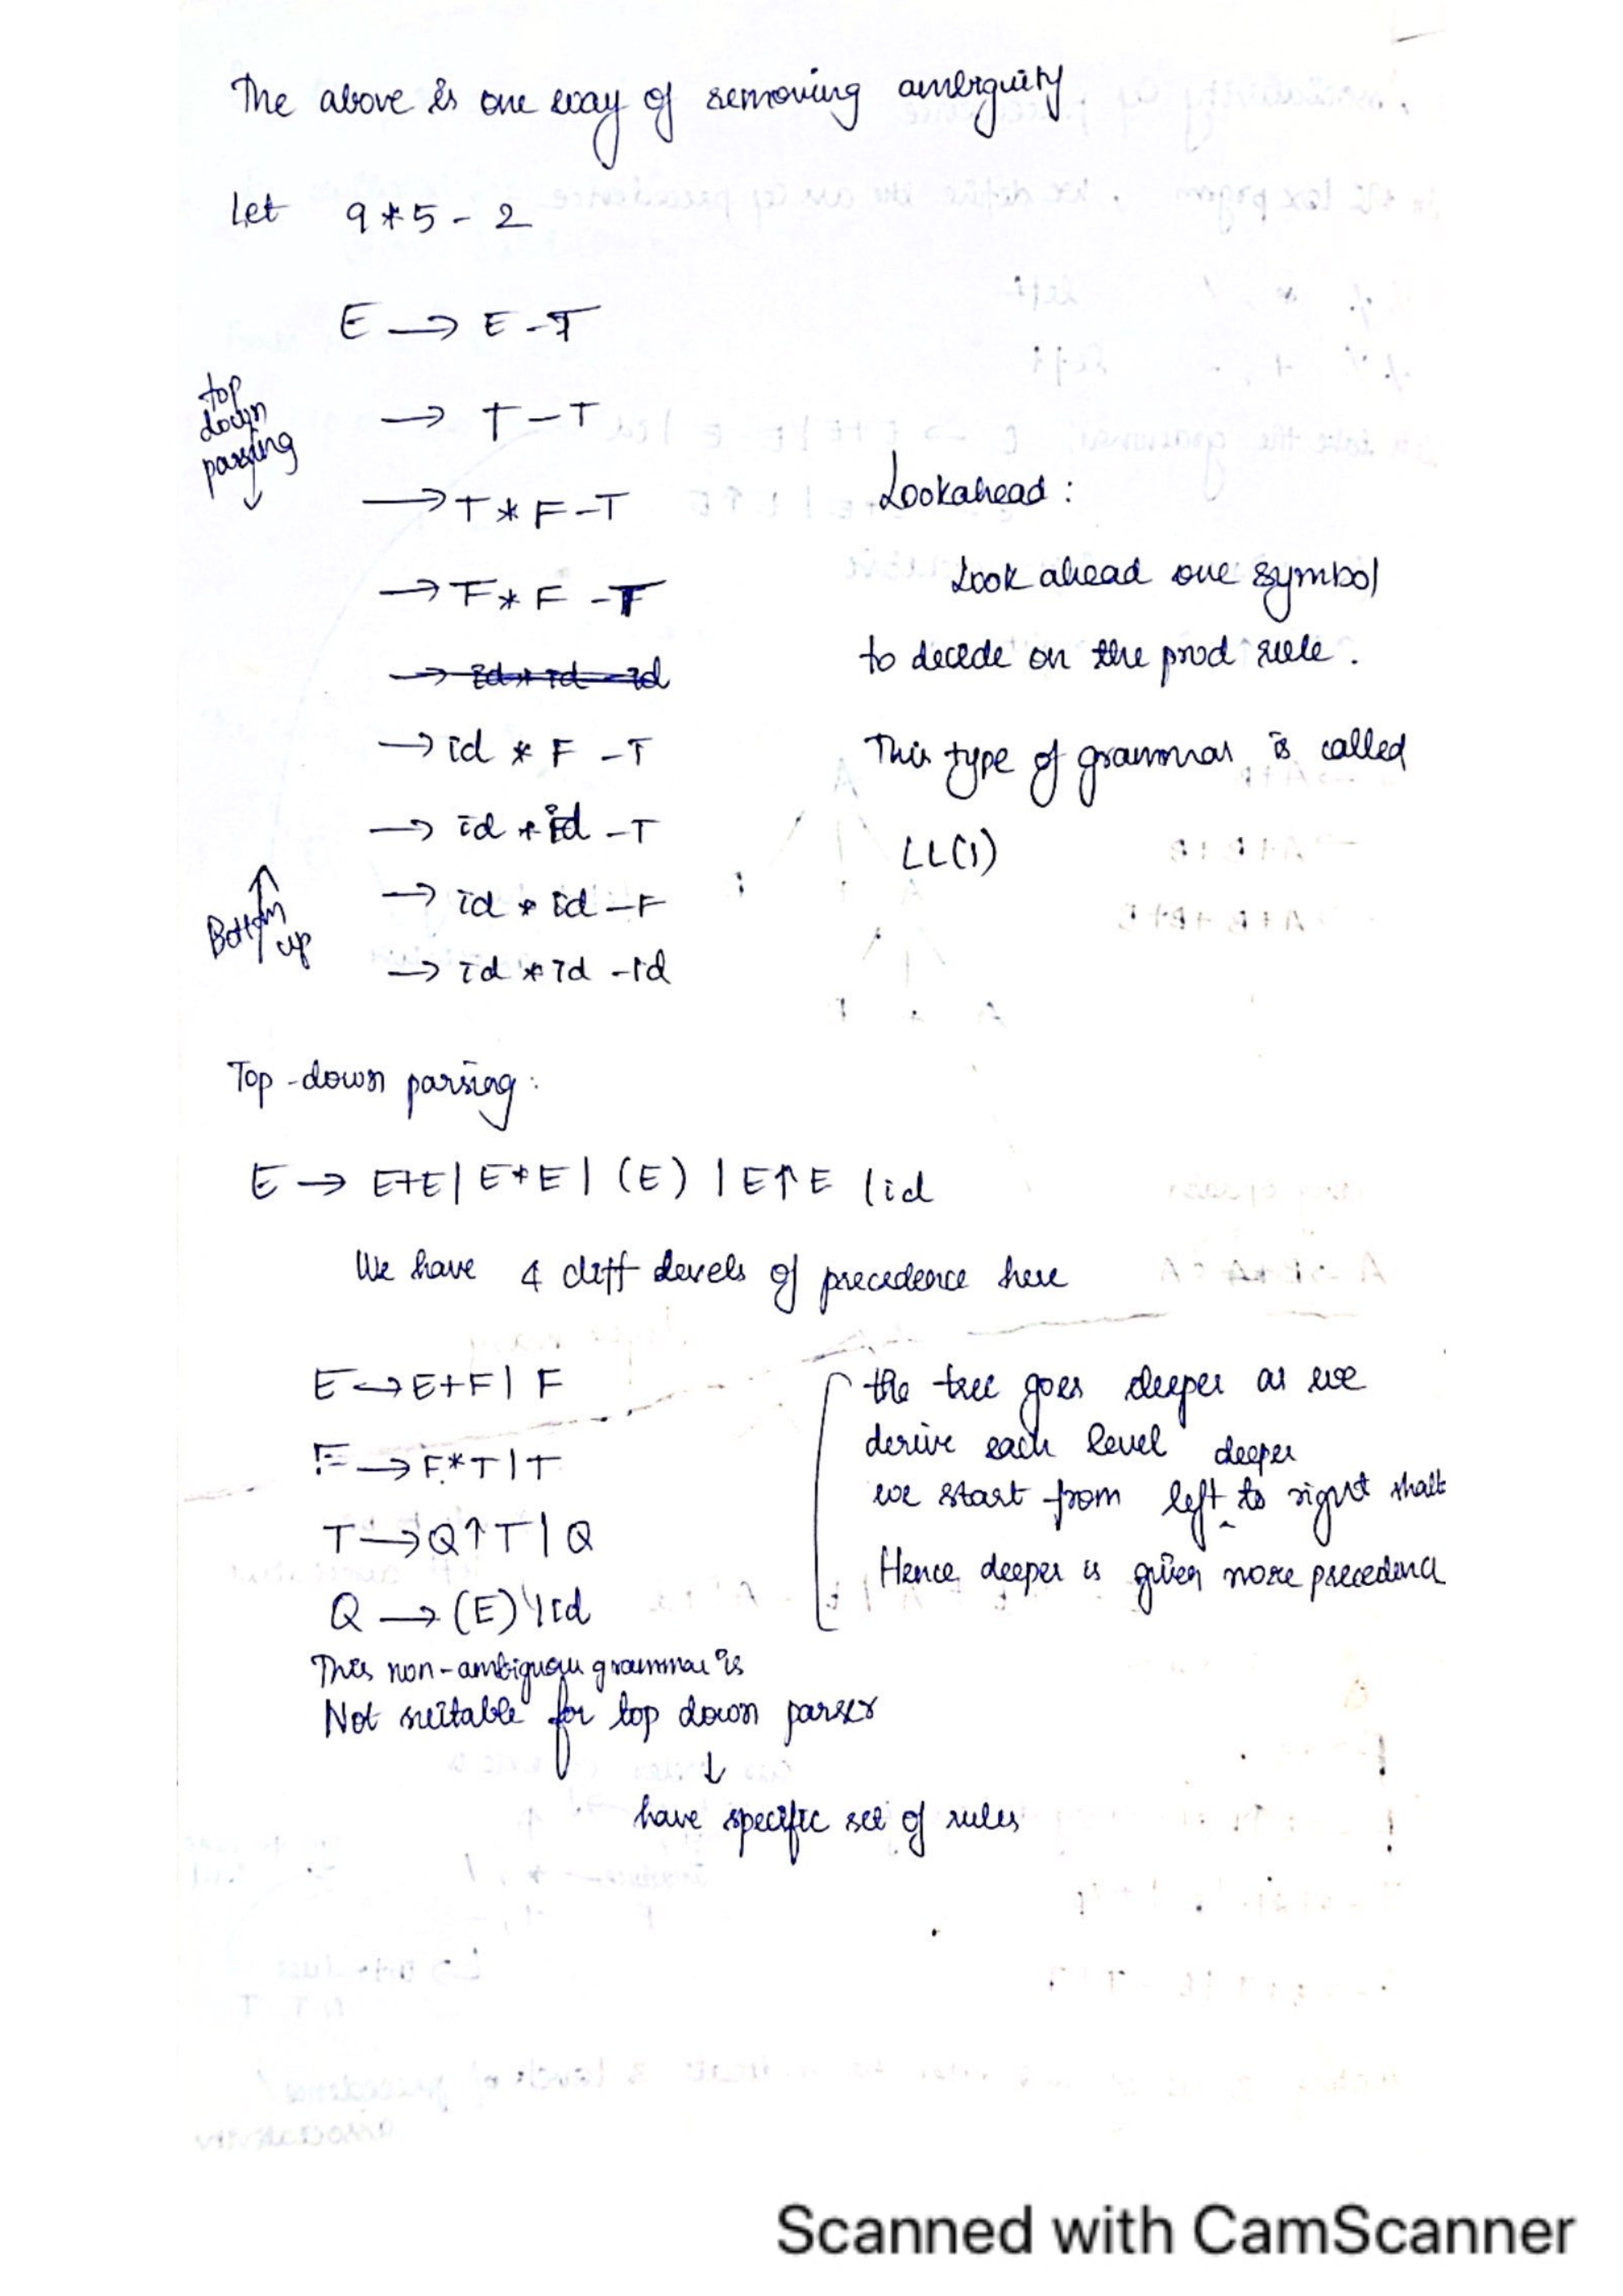 The above is one way of removing ambiguity
Let 9 * 5 - 2
E → E - T
top
down
parsing
→ T - T
→ T * F - T
→ F * F - T
→ id * id - id
→ id * F - T
→ id * id - T
→ id * id - F
→ id * id - id
Bottom
up
Lookahead :
Look ahead one symbol
to decide on the prod rule .
This type of grammar is called
LL(1)
Top - down parsing :
E → E+E | E*E | (E) | E↑E | id
We have 4 diff levels of precedence here
E → E+F | F
F → F*T | T
T → Q↑T | Q
Q → (E) | id
the tree goes deeper as we
derive each level deeper
we start from left to right
Hence deeper is given more precedence
This non-ambiguou grammar is
Not suitable for top down parser
↓
have specific set of rules
Scanned with CamScanner